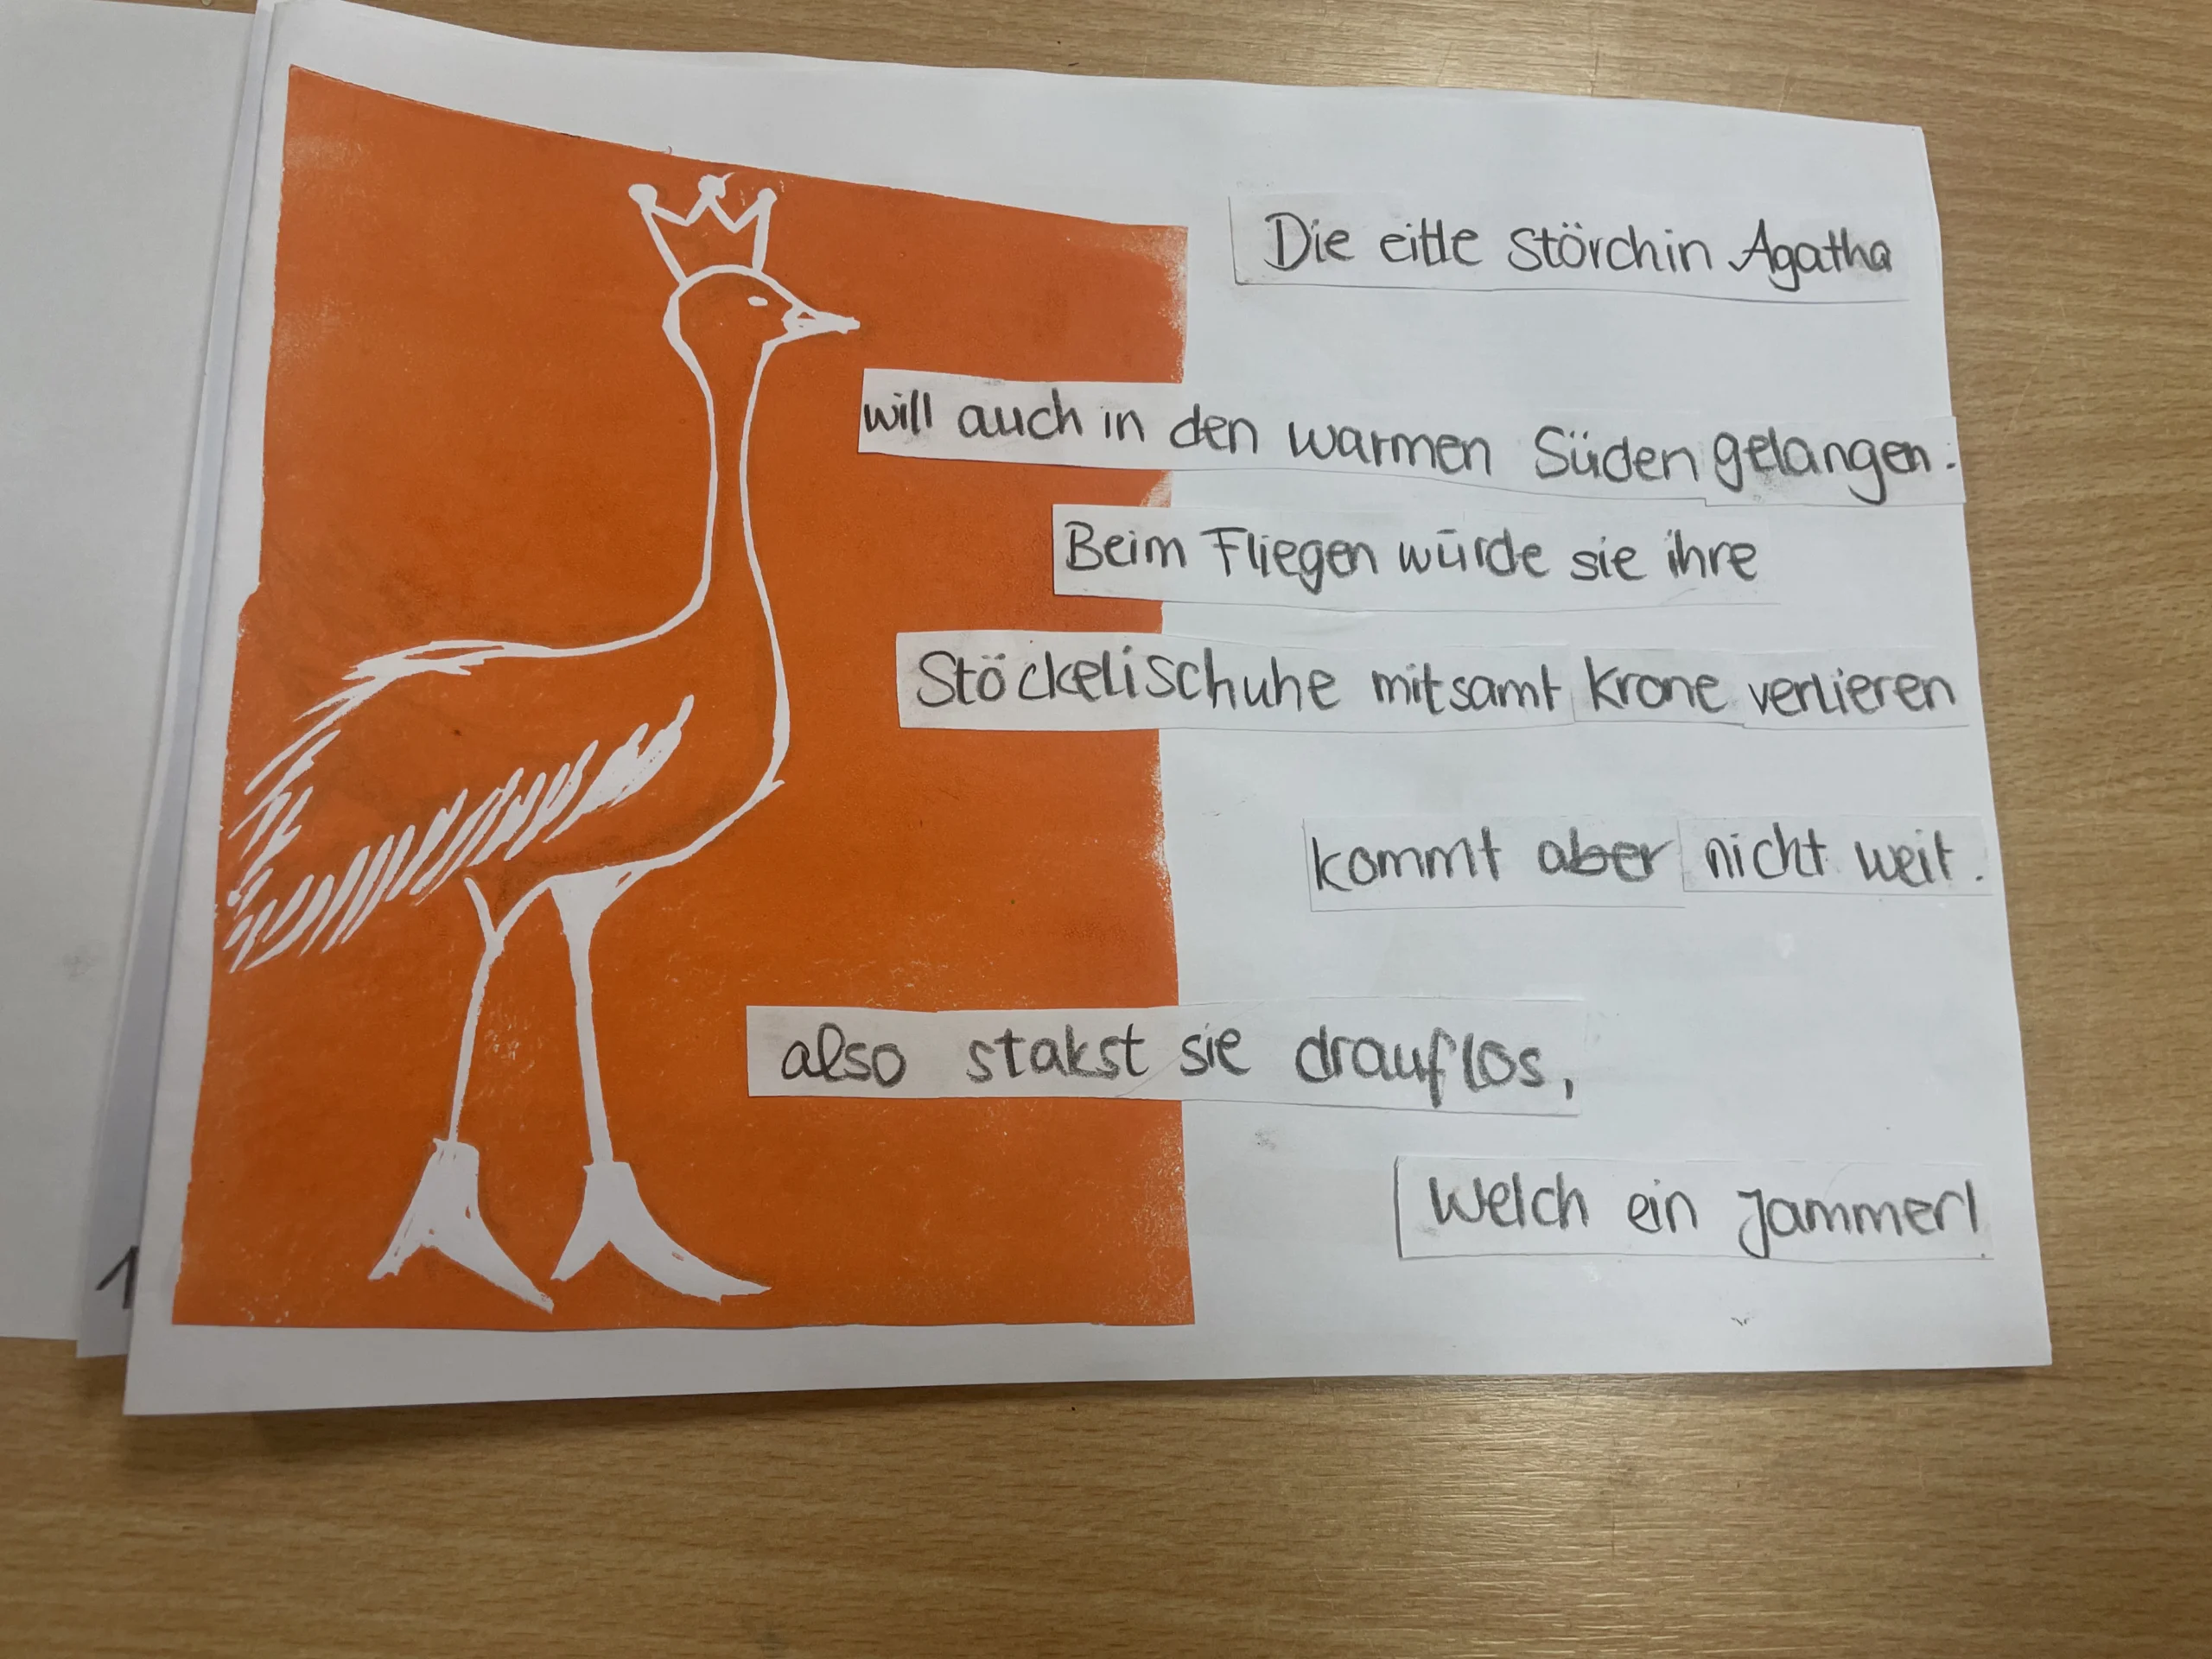 Die eitle Störchin Agatha
will auch in den warmen Süden gelangen.
Beim Fliegen würde sie ihre
Stöckelischuhe mitsamt Krone verlieren
kommt aber nicht weit.
also stakst sie drauflos,
Welch ein Jammer!
1